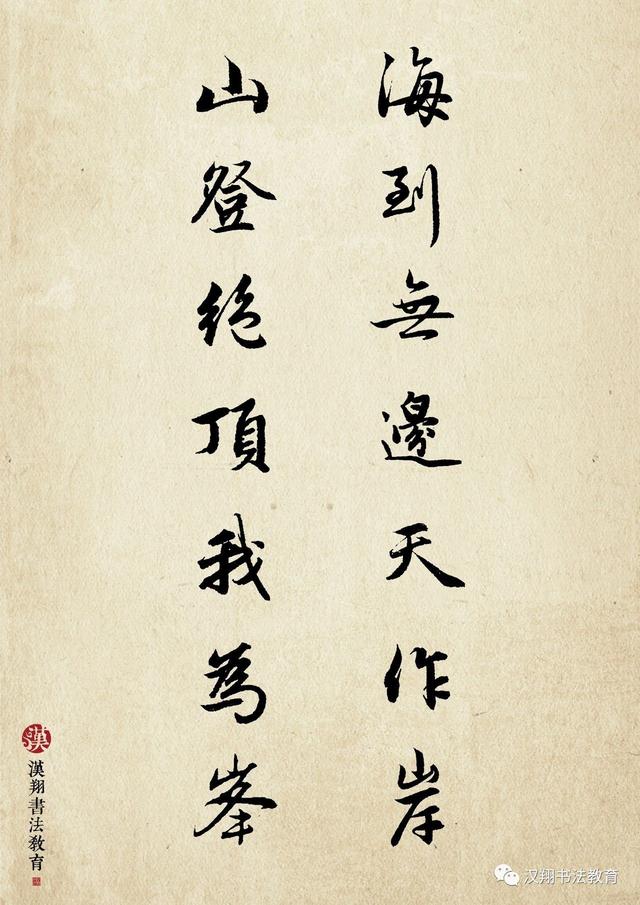 海到無邊天作岸
山登絶頂我為峯
漢
漢翔書法教育
汉翔书法教育